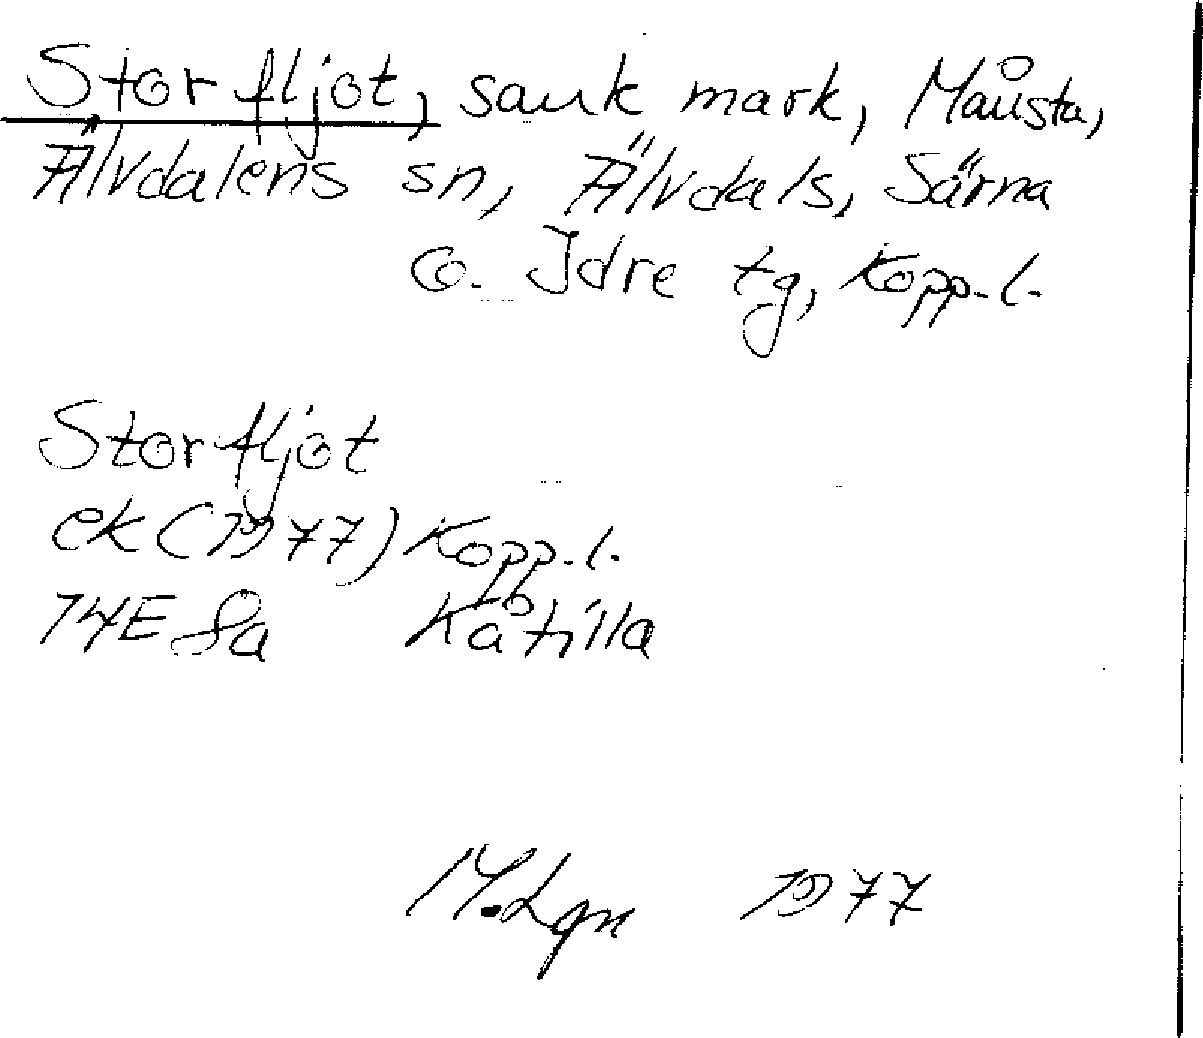 Storfljot, sank mark, Månsta,
Älvdalens sn, Älvdals, Särna
o. Idre tg, Kopp. l.
Storfljot
ek (1977) Kopp. l.
14E 8a Kåtilla
M. Lgn 1977